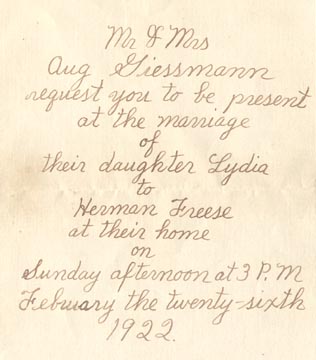 Mr & Mrs
Aug Giessmann
request you to be present
at the marriage
of
their daughter Lydia
to
Herman Freese
at their home
on
Sunday afternoon at 3 P.M
Febuary the twenty-sixth
1922.